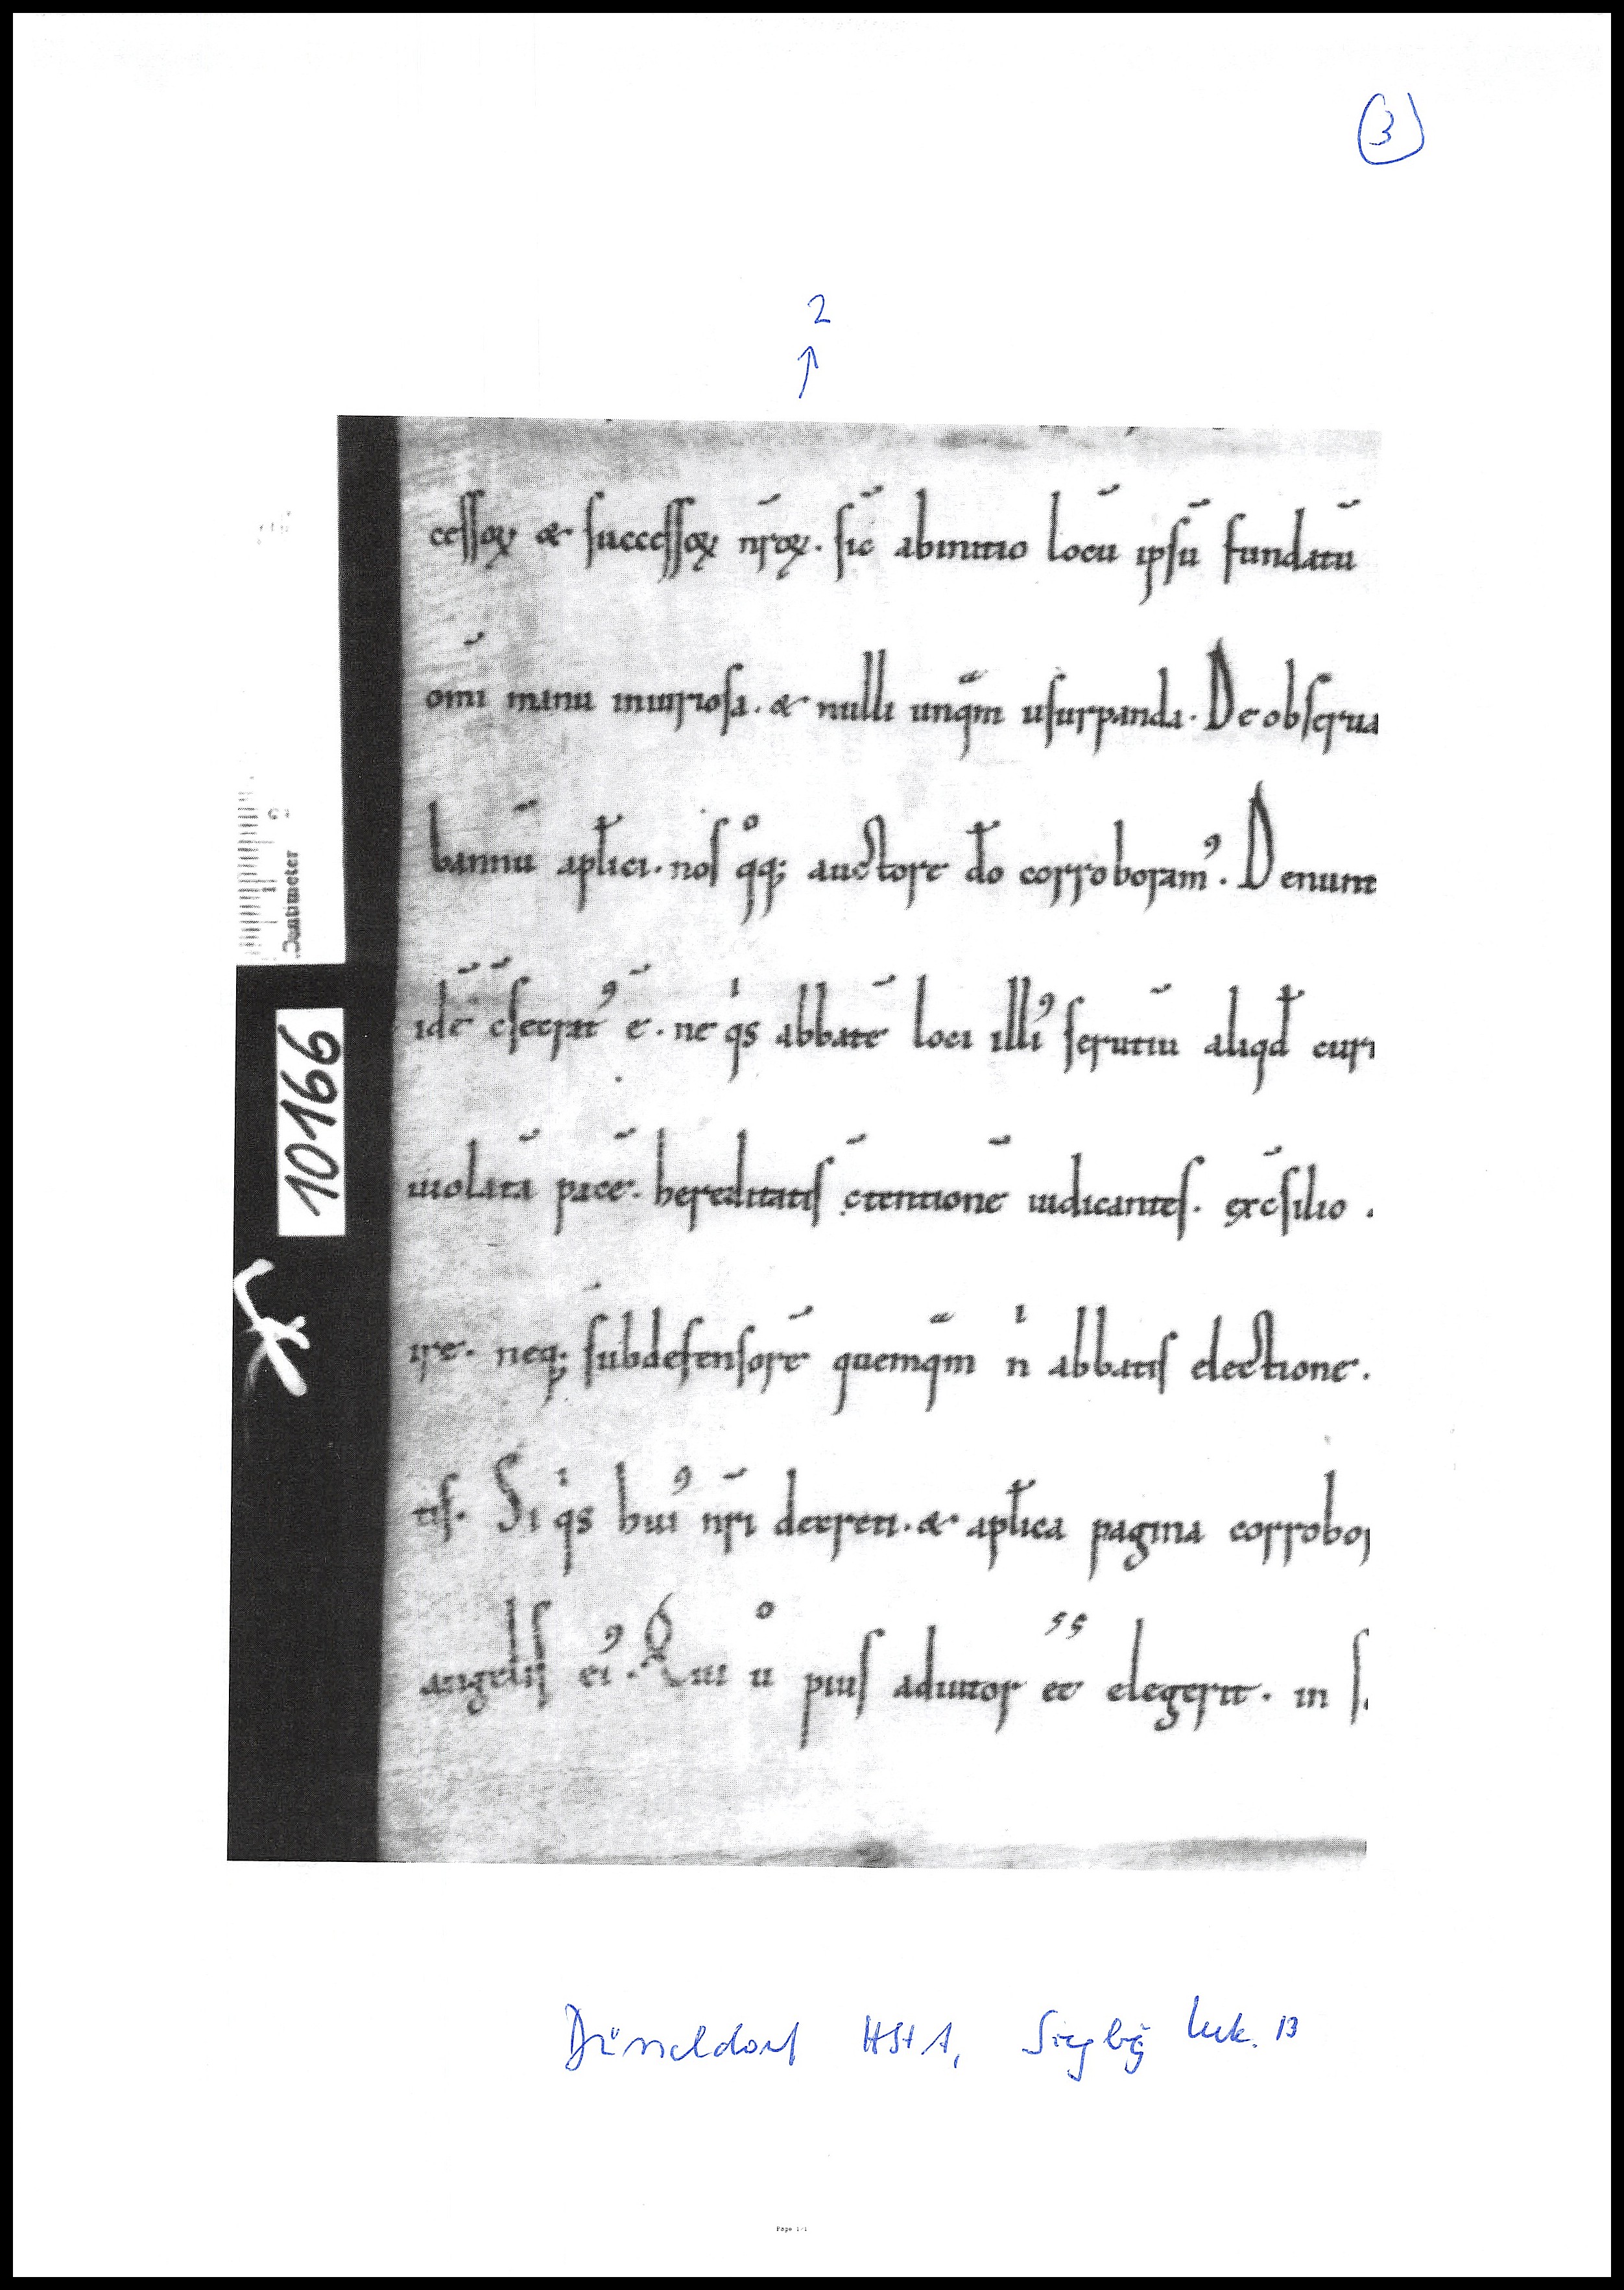 3
2
↑
ceſſoꝝ & ſucceſſoꝝ nr̄oꝝ. ſic̄ abinitio locū ipſū fundatū
om̄i manu iniurioſa. & nulli unqͣm uſurpanda. De obſerua
bannū apłici. noſ qͦq; auctore do̵ corroboramꝰ. Denunt
idē c̄ſecratꝰ ē. ne qͥs abbatē loci illiꝰ ſeruitiū aliqd̵ curi
uiolatā pacē. hereditatiſ c̄tentionē iudicanteſ. ęx c̄ſilio .
ire. neq; ſubdefenſorē quemqͣm nͥ abbatiſ electione.
tiſ. Si qͥs huiꝰ nr̄i decreti. & apłica pagina corrobor
angeliſ eiꝰ. Qui uͦ piuſ adiutor eē elegerit. in ſ
Centimeter
1
2
10166
Düsseldorf HStA, Siegbg Urk. 13
Page 1/1